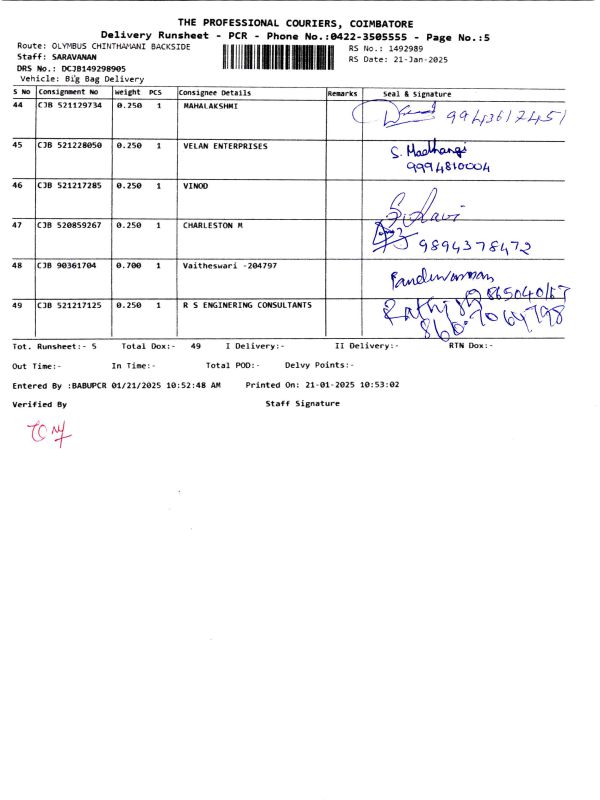 THE PROFESSIONAL COURIERS, COIMBATORE
Delivery Runsheet - PCR - Phone No.:0422-3505555 - Page No.:5
Route: OLYMBUS CHINTHAMANI BACKSIDE
RS No.: 1492989
Staff: SARAVANAN
RS Date: 21-Jan-2025
DRS No.: DCJB149298905
Vehicle: Big Bag Delivery
S No Consignment No Weight PCS Consignee Details Remarks Seal & Signature
44 CJB 521129734 0.250 1 MAHALAKSHMI 9943617451
45 CJB 521228050 0.250 1 VELAN ENTERPRISES S. Madhangi
9994810004
46 CJB 521217285 0.250 1 VINOD
47 CJB 520859267 0.250 1 CHARLESTON M 9894378472
48 CJB 90361704 0.700 1 Vaitheswari -204797
49 CJB 521217125 0.250 1 R S ENGINERING CONSULTANTS
Tot. Runsheet:- 5 Total Dox:- 49 I Delivery:- II Delivery:- RTN Dox:-
Out Time:- In Time:- Total POD:- Delvy Points:-
Entered By :BABUPCR 01/21/2025 10:52:48 AM Printed On: 21-01-2025 10:53:02
Verified By Staff Signature